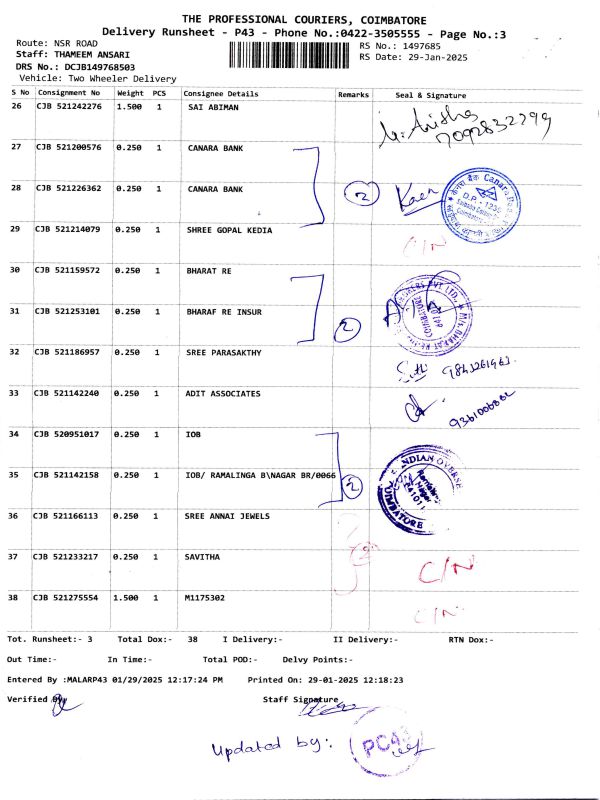 THE PROFESSIONAL COURIERS, COIMBATORE
Delivery Runsheet - P43 - Phone No.:0422-3505555 - Page No.:3
Route: NSR ROAD
Staff: THAMEEM ANSARI
DRS No.: DCJB149768503
Vehicle: Two Wheeler Delivery
RS No.: 1497685
RS Date: 29-Jan-2025
S No Consignment No Weight PCS Consignee Details Remarks Seal & Signature
26 CJB 521242276 1.500 1 SAI ABIMAN
7092832799
27 CJB 521200576 0.250 1 CANARA BANK
28 CJB 521226362 0.250 1 CANARA BANK 2
29 CJB 521214079 0.250 1 SHREE GOPAL KEDIA C/N
30 CJB 521159572 0.250 1 BHARAT RE
31 CJB 521253101 0.250 1 BHARAF RE INSUR 2
COIMBATORE
32 CJB 521186957 0.250 1 SREE PARASAKTHY
33 CJB 521142240 0.250 1 ADIT ASSOCIATES
34 CJB 520951017 0.250 1 IOB
35 CJB 521142158 0.250 1 IOB/ RAMALINGA B\NAGAR BR/0066 2
COIMBATORE
36 CJB 521166113 0.250 1 SREE ANNAI JEWELS
37 CJB 521233217 0.250 1 SAVITHA 2 C/N
38 CJB 521275554 1.500 1 M1175302 C/N
Tot. Runsheet:- 3 Total Dox:- 38 I Delivery:- II Delivery:- RTN Dox:-
Out Time:- In Time:- Total POD:- Delvy Points:-
Entered By :MALARP43 01/29/2025 12:17:24 PM Printed On: 29-01-2025 12:18:23
Verified By Staff Signature
Updated by: